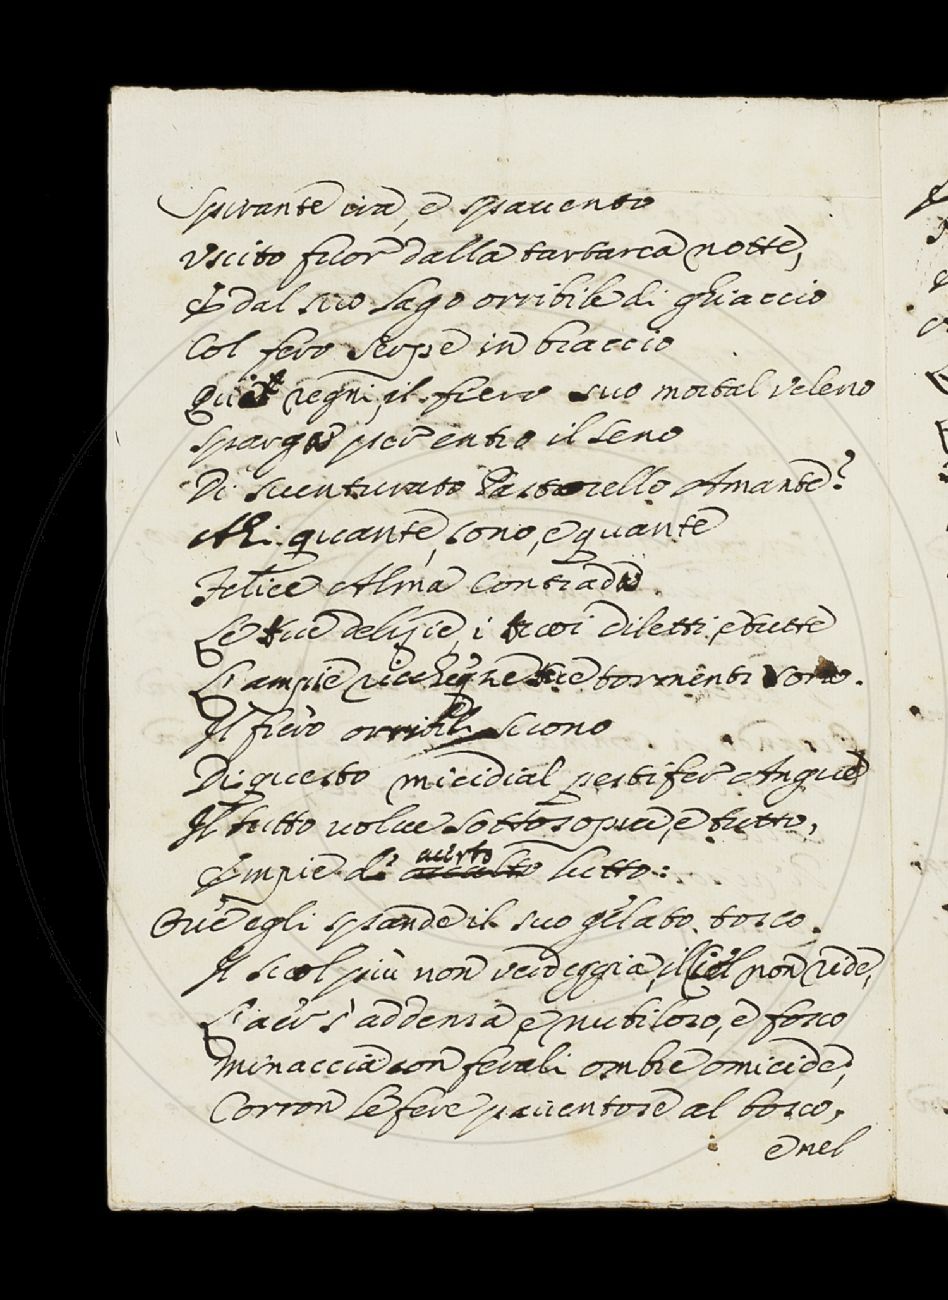 Spirante ira, e spauento
Vscito fuor dalla tartarea notte,
E dal suo lago orribile di ghiaccio
Col fero serpe in braccio
Quì regni, il fiero suo mortal veleno
Sparge per entro il seno
Di suenturato Pastorello Amante?
Ahi quante, sono, e quante
Felice Alma Contrada
Le tue delizie, i tuoi diletti, e tutte
L'ampie ricchezze tue tormenti sono.
Il fiero orribil suono
Di questo micidial pestifer Angue
Il tutto volue sottosopra, e tutto,
Empie di acerto lutto:
Oue egli spande il suo gelato tosco.
Il suol più non verdeggia, il Ciel non ride,
L'aer s'addensa, e nubiloso, e fosco
Minaccia con ferali ombre omicide,
Corron le fere pauentose al bosco,
e nel